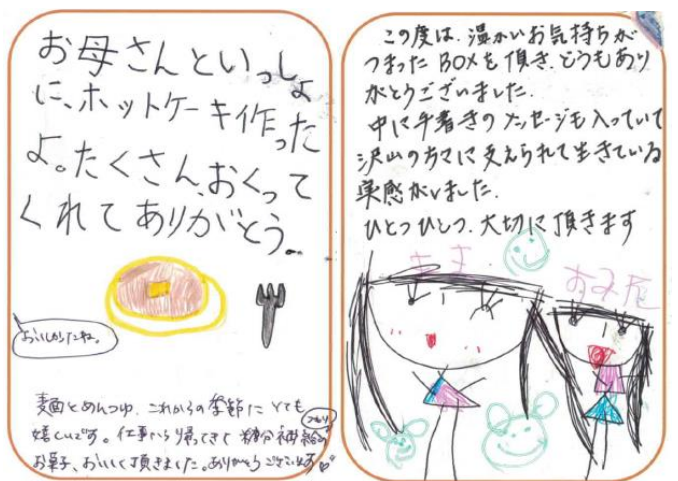 お母さんといっしょ
に、ホットケーキ作った
よ。たくさん、おくって
くれてありがとう。
おいしかったね。
麺とめんつゆ、これからの季節にとても
嬉しいです。仕事から帰ってきて糖分補給の
お菓子、おいしく頂きました。ありがとうございます
この度は、温かいお気持ちが
つまったBOXを頂き、どうもあり
がとうございました。
中に手書きのメッセージも入っていて
沢山の方々に支えられて生きている
実感がしました。
ひとつひとつ、大切に頂きます